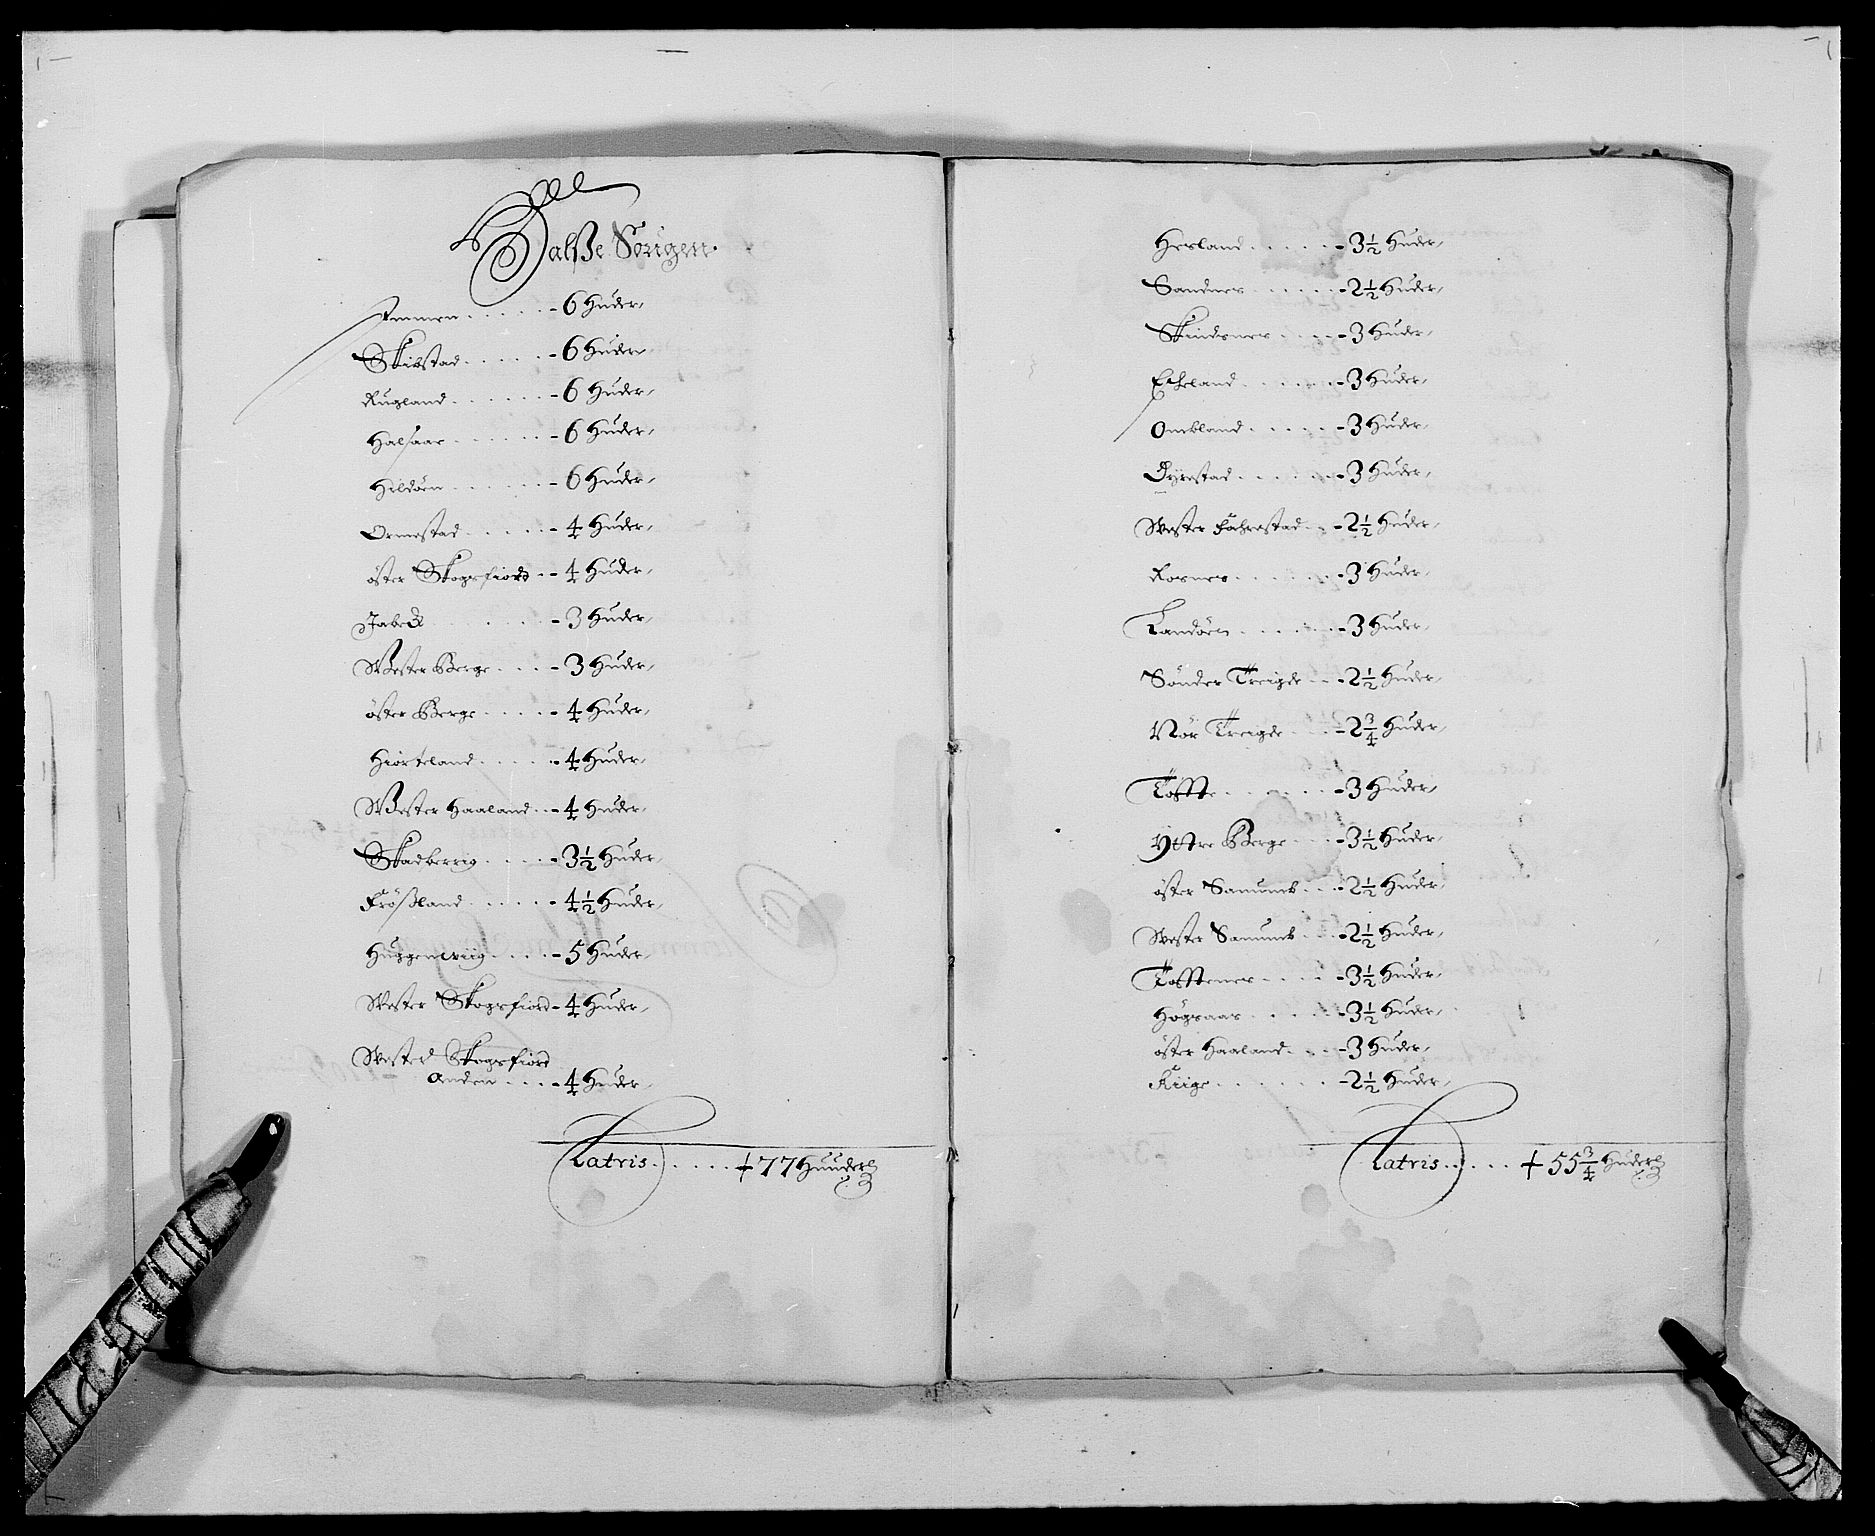 Halsße Sougen.
Immen . . . . . - 6 Huder
Skibstad . . . . . - 6 Huder
Rugland . . . . . - 6 Huder
Halsaar . . . . . - 6 Huder
Hildöen . . . . . - 6 Huder
Ormestad . . . . . - 4 Huder
öster Skogsfiord . . - 4 Huder
Jabeck . . . . . - 3 Huder
Wester Berge . . . . - 3 Huder
öster Berge . . . . . - 4 Huder
Hiorteland . . . . . - 4 Huder
Wester Haaland . . - 4 Huder
Skadberrig . . . . . - 3½ Huder
Frößland . . . . . - 4½ Huder
Huggenerviig . . . . - 5 Huder
Wester Skogsfiord - 4 Huder
Wested Skogsfiord
anden . . . . - 4 Huder
Latris . . . . . + 77 Huuder
Herland . . . . . - 3½ Huder
Sandnes . . . . . - 2½ Huder
Skindsnes . . . . . - 3 Huder
Echeland . . . . . - 3 Huder
Omland . . . . . - 3 Huder
Dyrestad . . . . . - 3 Huder
Wester Fahrestad . . - 2½ Huder
Rosnes . . . . . - 3 Huder
Landöen . . . . . - 3 Huder
Sönder Treigde . . - 2½ Huder
Nör Treigde . . . - 2¾ Huder
Töffte . . . . . - 3 Huder
Yttre Berge . . . - 3½ Huder
öster Sanumb . . . - 2½ Huder
Wester Sanumb . . . - 2½ Huder
Töfftenes . . . . . - 3½ Huder
Högsaas . . . . . - 3½ Huder
öster Haaland . . . - 3 Huder
Kiige . . . . . - 2½ Huder
Latris . . . . . + 55¾ Huder